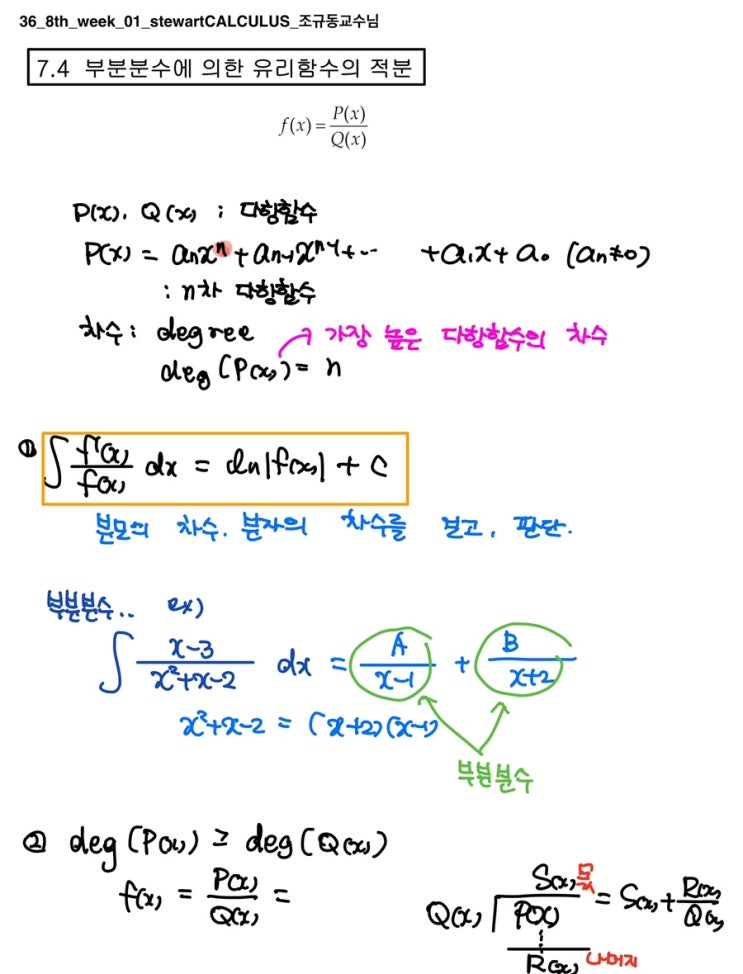 36_8th_week_01_stewartCALCULUS_조규동교수님
7.4 부분분수에 의한 유리함수의 적분
f(x) = P(x)/Q(x)
P(x), Q(x) : 다항함수
P(x) = aₙxⁿ + aₙ₋₁xⁿ⁻¹ + ··· + a₁x + a₀ (aₙ≠0)
: n차 다항함수
차수 : degree → 가장 높은 다항함수의 차수
deg (P(x)) = n
① ∫ f'(x)/f(x) dx = ln|f(x)| + C
분모의 차수, 분자의 차수를 보고, 판단.
부분분수.. ex)
∫ x-3/x²+x-2 dx = A/x-1 + B/x+2
x²+x-2 = (x+2)(x-1)
부분분수
② deg (P(x)) ≥ deg (Q(x))
f(x) = P(x)/Q(x) =
S(x) 몫
Q(x) P(x) = S(x) + R(x)/Q(x)
R(x) 나머지